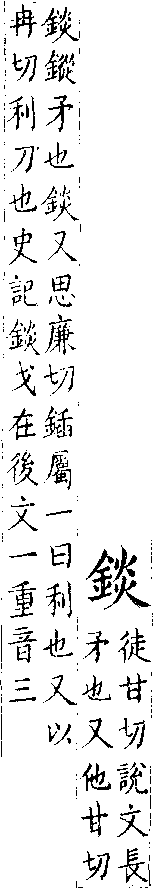 錟
徒甘切說文長
矛也又他甘切
錟鏦矛也錟又思廉切鍤屬一曰利也又以
冉切利刀也史記錟戈在後文一重音三